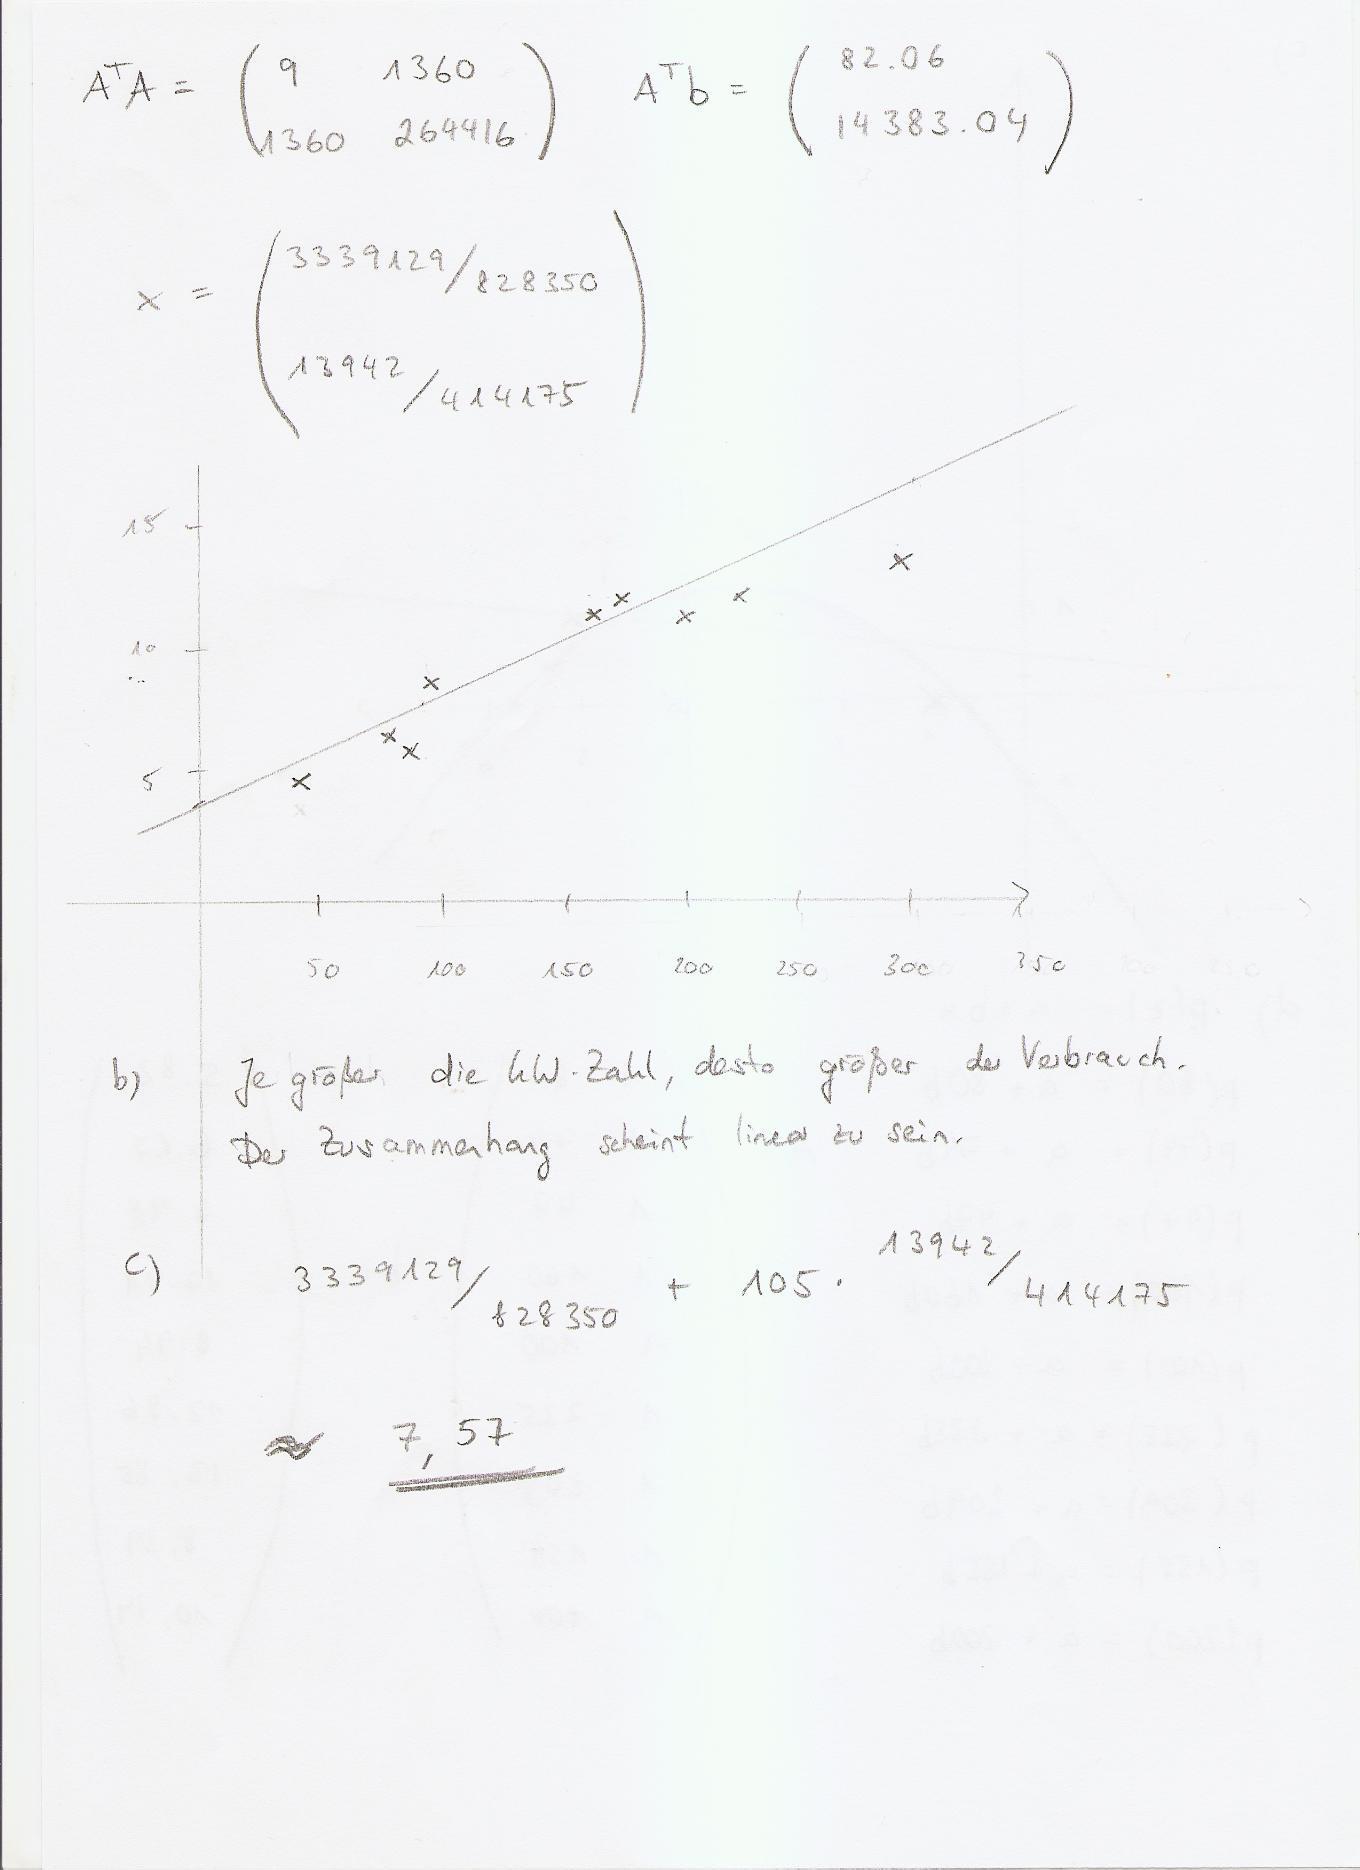 AᵀA = ( 9 1360
1360 264416 )
Aᵀb = ( 82.06
14383.04 )
x = ( 3339129/828350
13942/414175 )
15
10
5
50 100 150 200 250 300 350
b) Je größer die kW-Zahl, desto größer der Verbrauch.
Der Zusammenhang scheint linear zu sein.
c) 3339129/828350 + 105 · 13942/414175
≈ 7,57